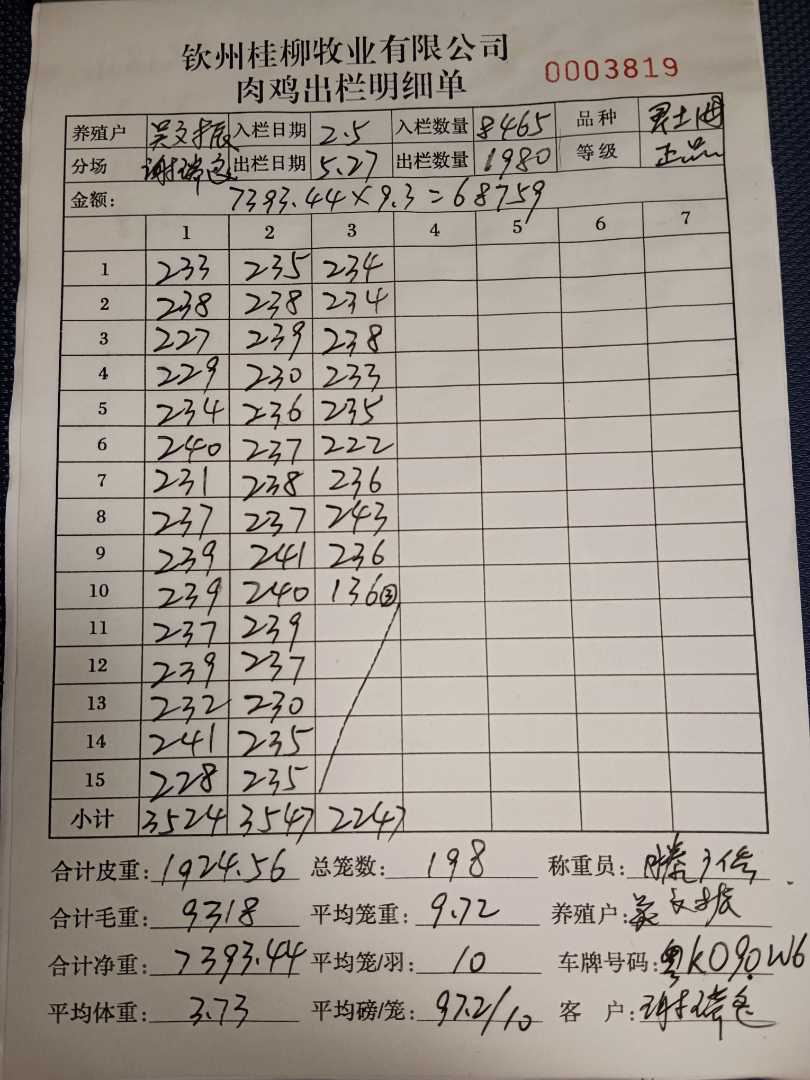 钦州桂柳牧业有限公司
肉鸡出栏明细单 0003819
养殖户 吴文振 入栏日期 2.5 入栏数量 8465 品种
分场 谢瑞 出栏日期 5.27 出栏数量 1980 等级 正品
金额: 7393.44×9.3=68759
1 2 3 4 5 6 7
1 233 235 234
2 238 238 234
3 227 239 238
4 229 230 233
5 234 236 235
6 240 237 222
7 231 238 236
8 237 237 243
9 239 241 236
10 239 240 136③
11 237 239
12 239 237
13 232 230
14 241 235
15 228 235
小计 3524 3547 2247
合计皮重: 1924.56 总笼数: 198 称重员:
合计毛重: 9318 平均笼重: 9.72 养殖户: 吴文振
合计净重: 7393.44 平均笼/羽: 10 车牌号码: 粤K090W6
平均体重: 3.73 平均磅/笼: 97.2/10 客户: 谢瑞